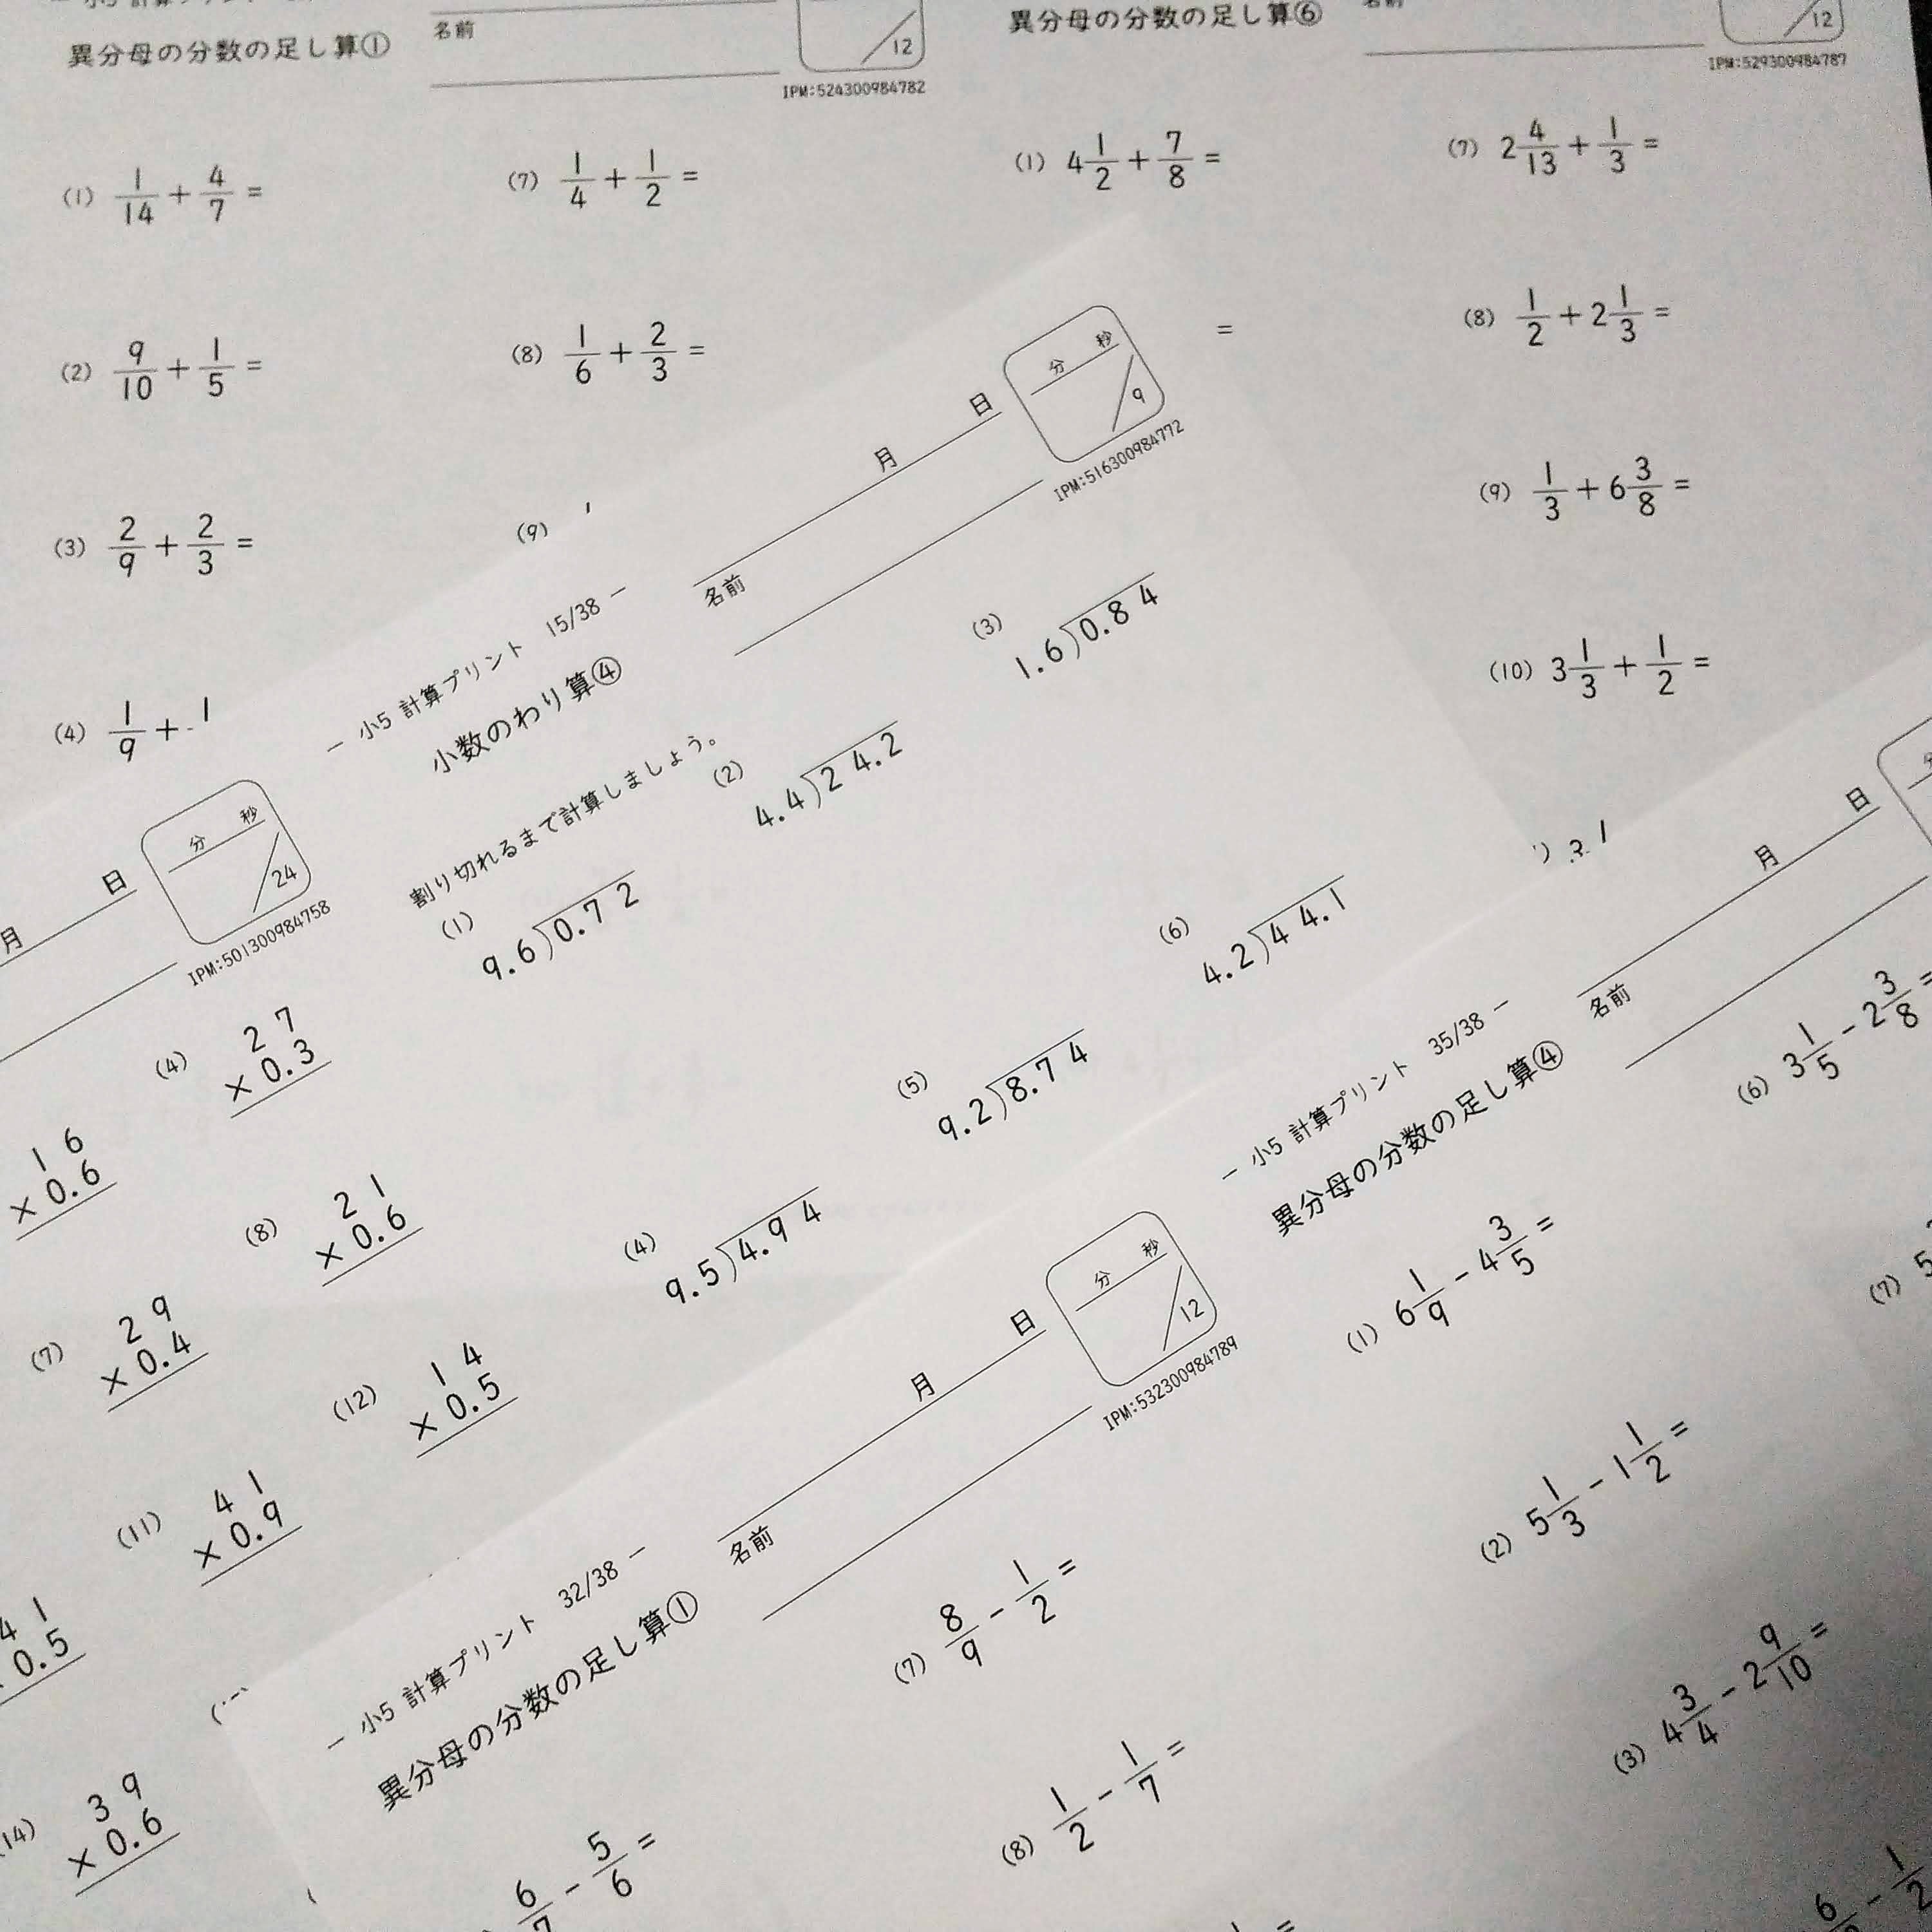 異分母の分数の足し算①
名前
/12
IPM:524300984782
(1) 1/14 + 4/7 =
(7) 1/4 + 1/2 =
(2) 9/10 + 1/5 =
(8) 1/6 + 2/3 =
(3) 2/9 + 2/3 =
(9)
(4) 1/9 +
異分母の分数の足し算⑥
/12
IPM:529300984787
(1) 4 1/2 + 7/8 =
(7) 2 4/13 + 1/3 =
=
(8) 1/2 + 2 1/3 =
(9) 1/3 + 6 3/8 =
(10) 3 1/3 + 1/2 =
— 小5 計算プリント 15/38 —
小数のわり算④
月 日
名前
分 秒
/9
IPM:516300984772
割り切れるまで計算しましょう。
(1) 9.6)0.72
(2) 4.4)24.2
(3) 1.6)0.84
(4) 9.5)4.94
(5) 9.2)8.74
(6) 4.2)44.1
月 日
分 秒
/24
IPM:501300984758
16
×0.6
(4) 27
×0.3
(7) 29
×0.4
(8) 21
×0.6
(11) 41
×0.9
(12) 14
×0.5
41
0.5
(14) 39
×0.6
— 小5 計算プリント 32/38 —
異分母の分数の足し算①
月 日
名前
分 秒
/12
IPM:532300984789
6/7 − 5/6 =
(7) 8/9 − 1/2 =
(8) 1/2 − 1/7 =
— 小5 計算プリント 35/38 —
異分母の分数の足し算④
月 日
名前
(1) 6 1/9 − 4 3/5 =
(6) 3 1/5 − 2 3/8 =
(2) 5 1/3 − 1 1/2 =
(7) 5
(3) 4 3/4 − 2 9/10 =